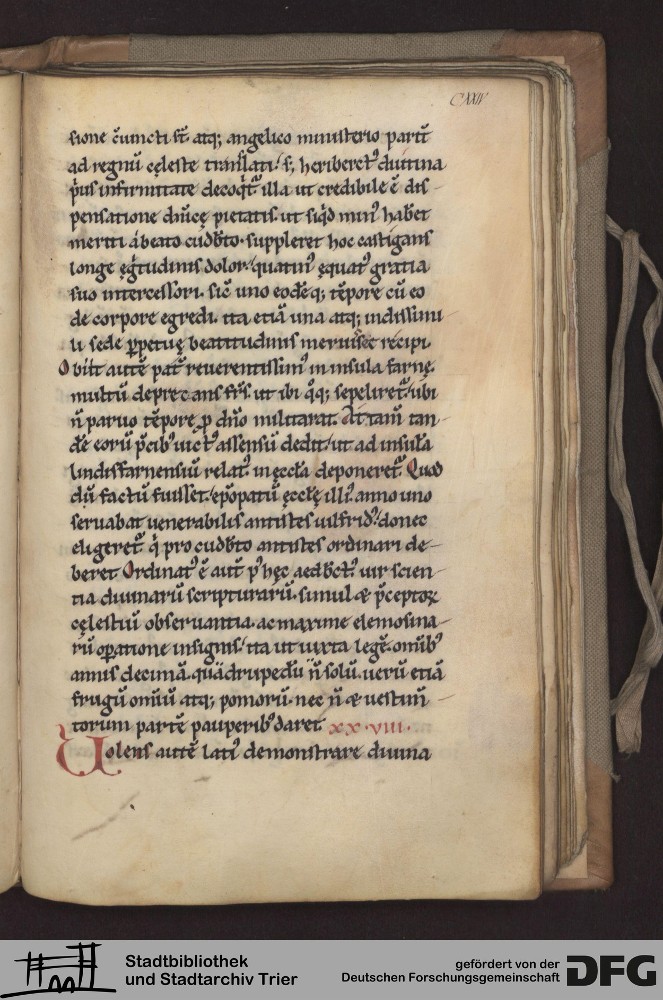 CXXIV
sione c̄iuncti st̄. atq; angelico ministerio parit̄
ad regnū cęleste translati. s; heriberct᷒ diutina
pͥus infirmitate decoq̄t᷒ illa ut credibile ē dis-
pensatione dn̄icę pietatis. ut siqͥd min᷒ habet
meriti a beato cudb̄to. suppleret hoc castigans
longe ęgͥtudinis dolor. quatin᷒ ęquat᷒ gratia
suo intercessori. sic̄ uno eodēq; tēpore cū eo
de corpore egredi. ita etiā una atq; indissimi-
li sede ꝑpetuę beatitudinis meruisset recipi.
Obiit autē pat᷒ reuerentissim᷒ in insula farnę.
multū deprecans fr̄s. ut ibi qͦq; sepeliret᷒. ubi
n̄ paruo tēpore ꝓ dn̄o militarat. At tam̄ tan-
dē eorū pͥcib᷒ uict᷒ assensū dedit. ut ad insulā
lindisfarnensiū relat᷒ in ęccła deponeret᷒. Quod
dū factū fuisset. ep̄opatū ęccłę illi᷒ anno uno
seruabat uenerabilis antistes uilfrid᷒. donec
eligeret᷒ qͥ pro cudb̄to antistes ordinari de-
beret. Ordinat᷒ ē aut̄ pͦ hęc aedb̄ct᷒ uir scien-
tia diuinarū scripturarū. simul & p̄ceptoꝝ
cęlestiū obseruantia. ac maxime elemosina-
rū oꝑatione insignis. ita ut iuxta legē. omīb᷒
annis decimā. quadrupedū n̄ solū. uerū etiā
frugū omiū atq; pomorū. nec n̄ & uestim̄-
torum partē pauperib᷒ daret. xx.viii.
Uolens autē lati᷒ demonstrare diuina
Stadtbibliothek
und Stadtarchiv Trier
gefördert von der
Deutschen Forschungsgemeinschaft
DFG